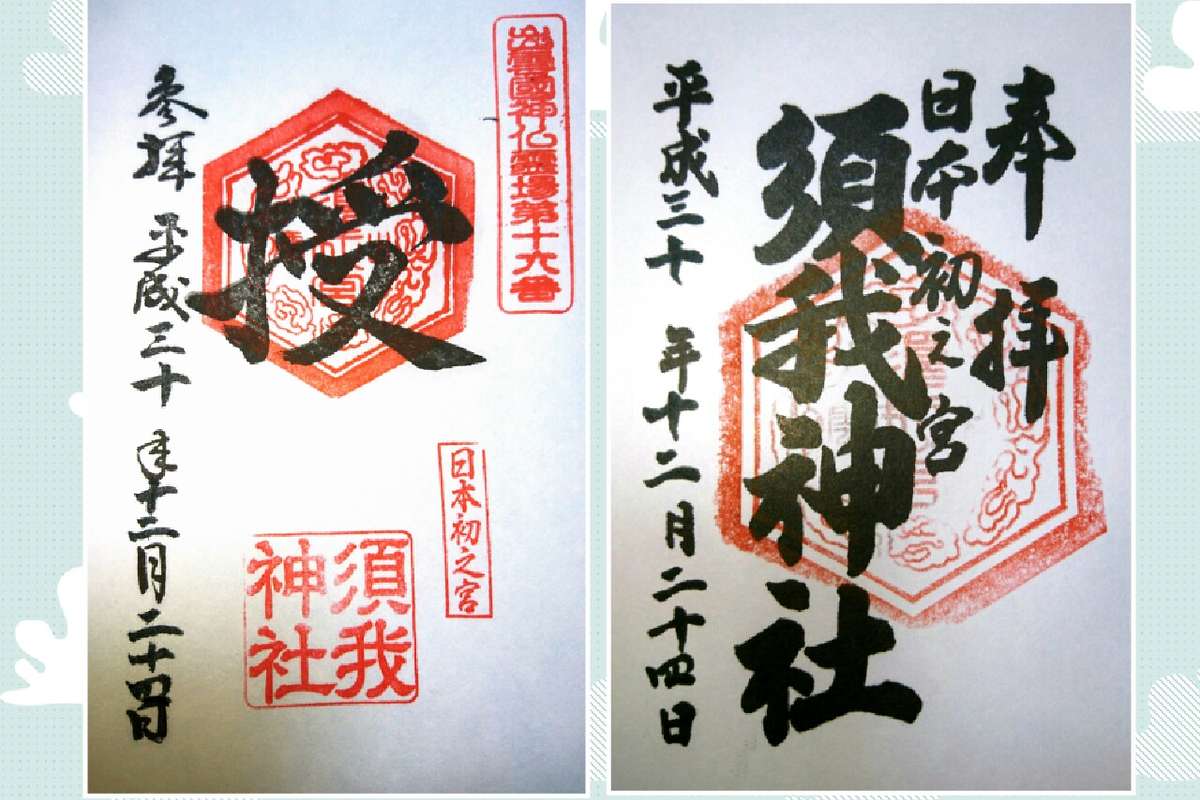 出雲國神仏霊場第十六番
授
日本初之宮
須我
神社
参拝 平成三十年十二月二十四日
奉拝
日本初之宮
須我神社
平成三十年十二月二十四日